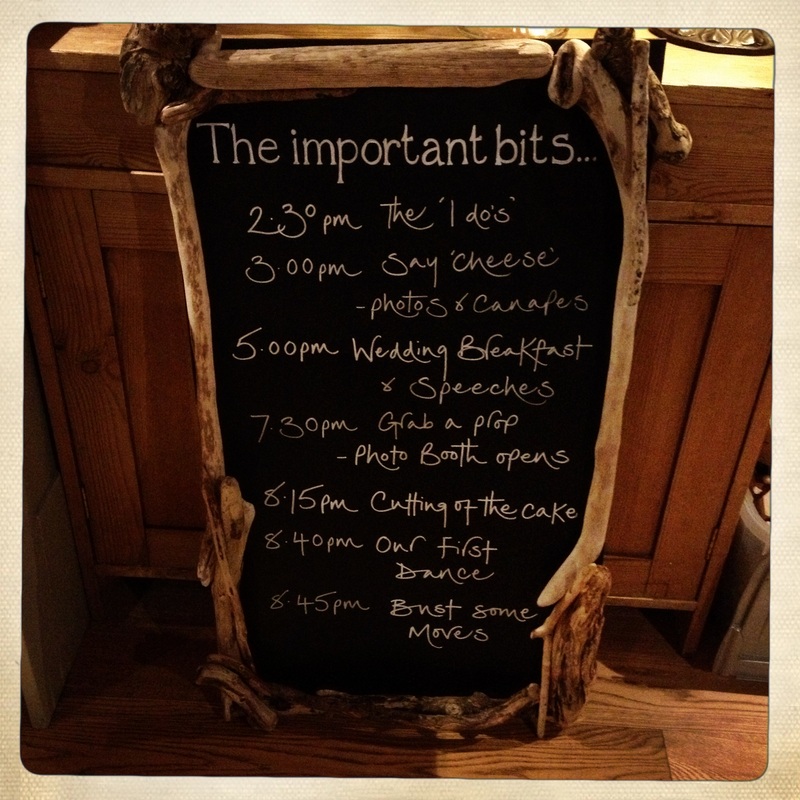 The important bits...
2.30pm The 'I do's'
3.00pm Say 'Cheese'
- photos & Canapes
5.00pm Wedding Breakfast
& Speeches
7.30pm Grab a prop
- Photo Booth opens
8.15pm Cutting of the cake
8.40pm Our First
Dance
8.45pm Bust some
Moves